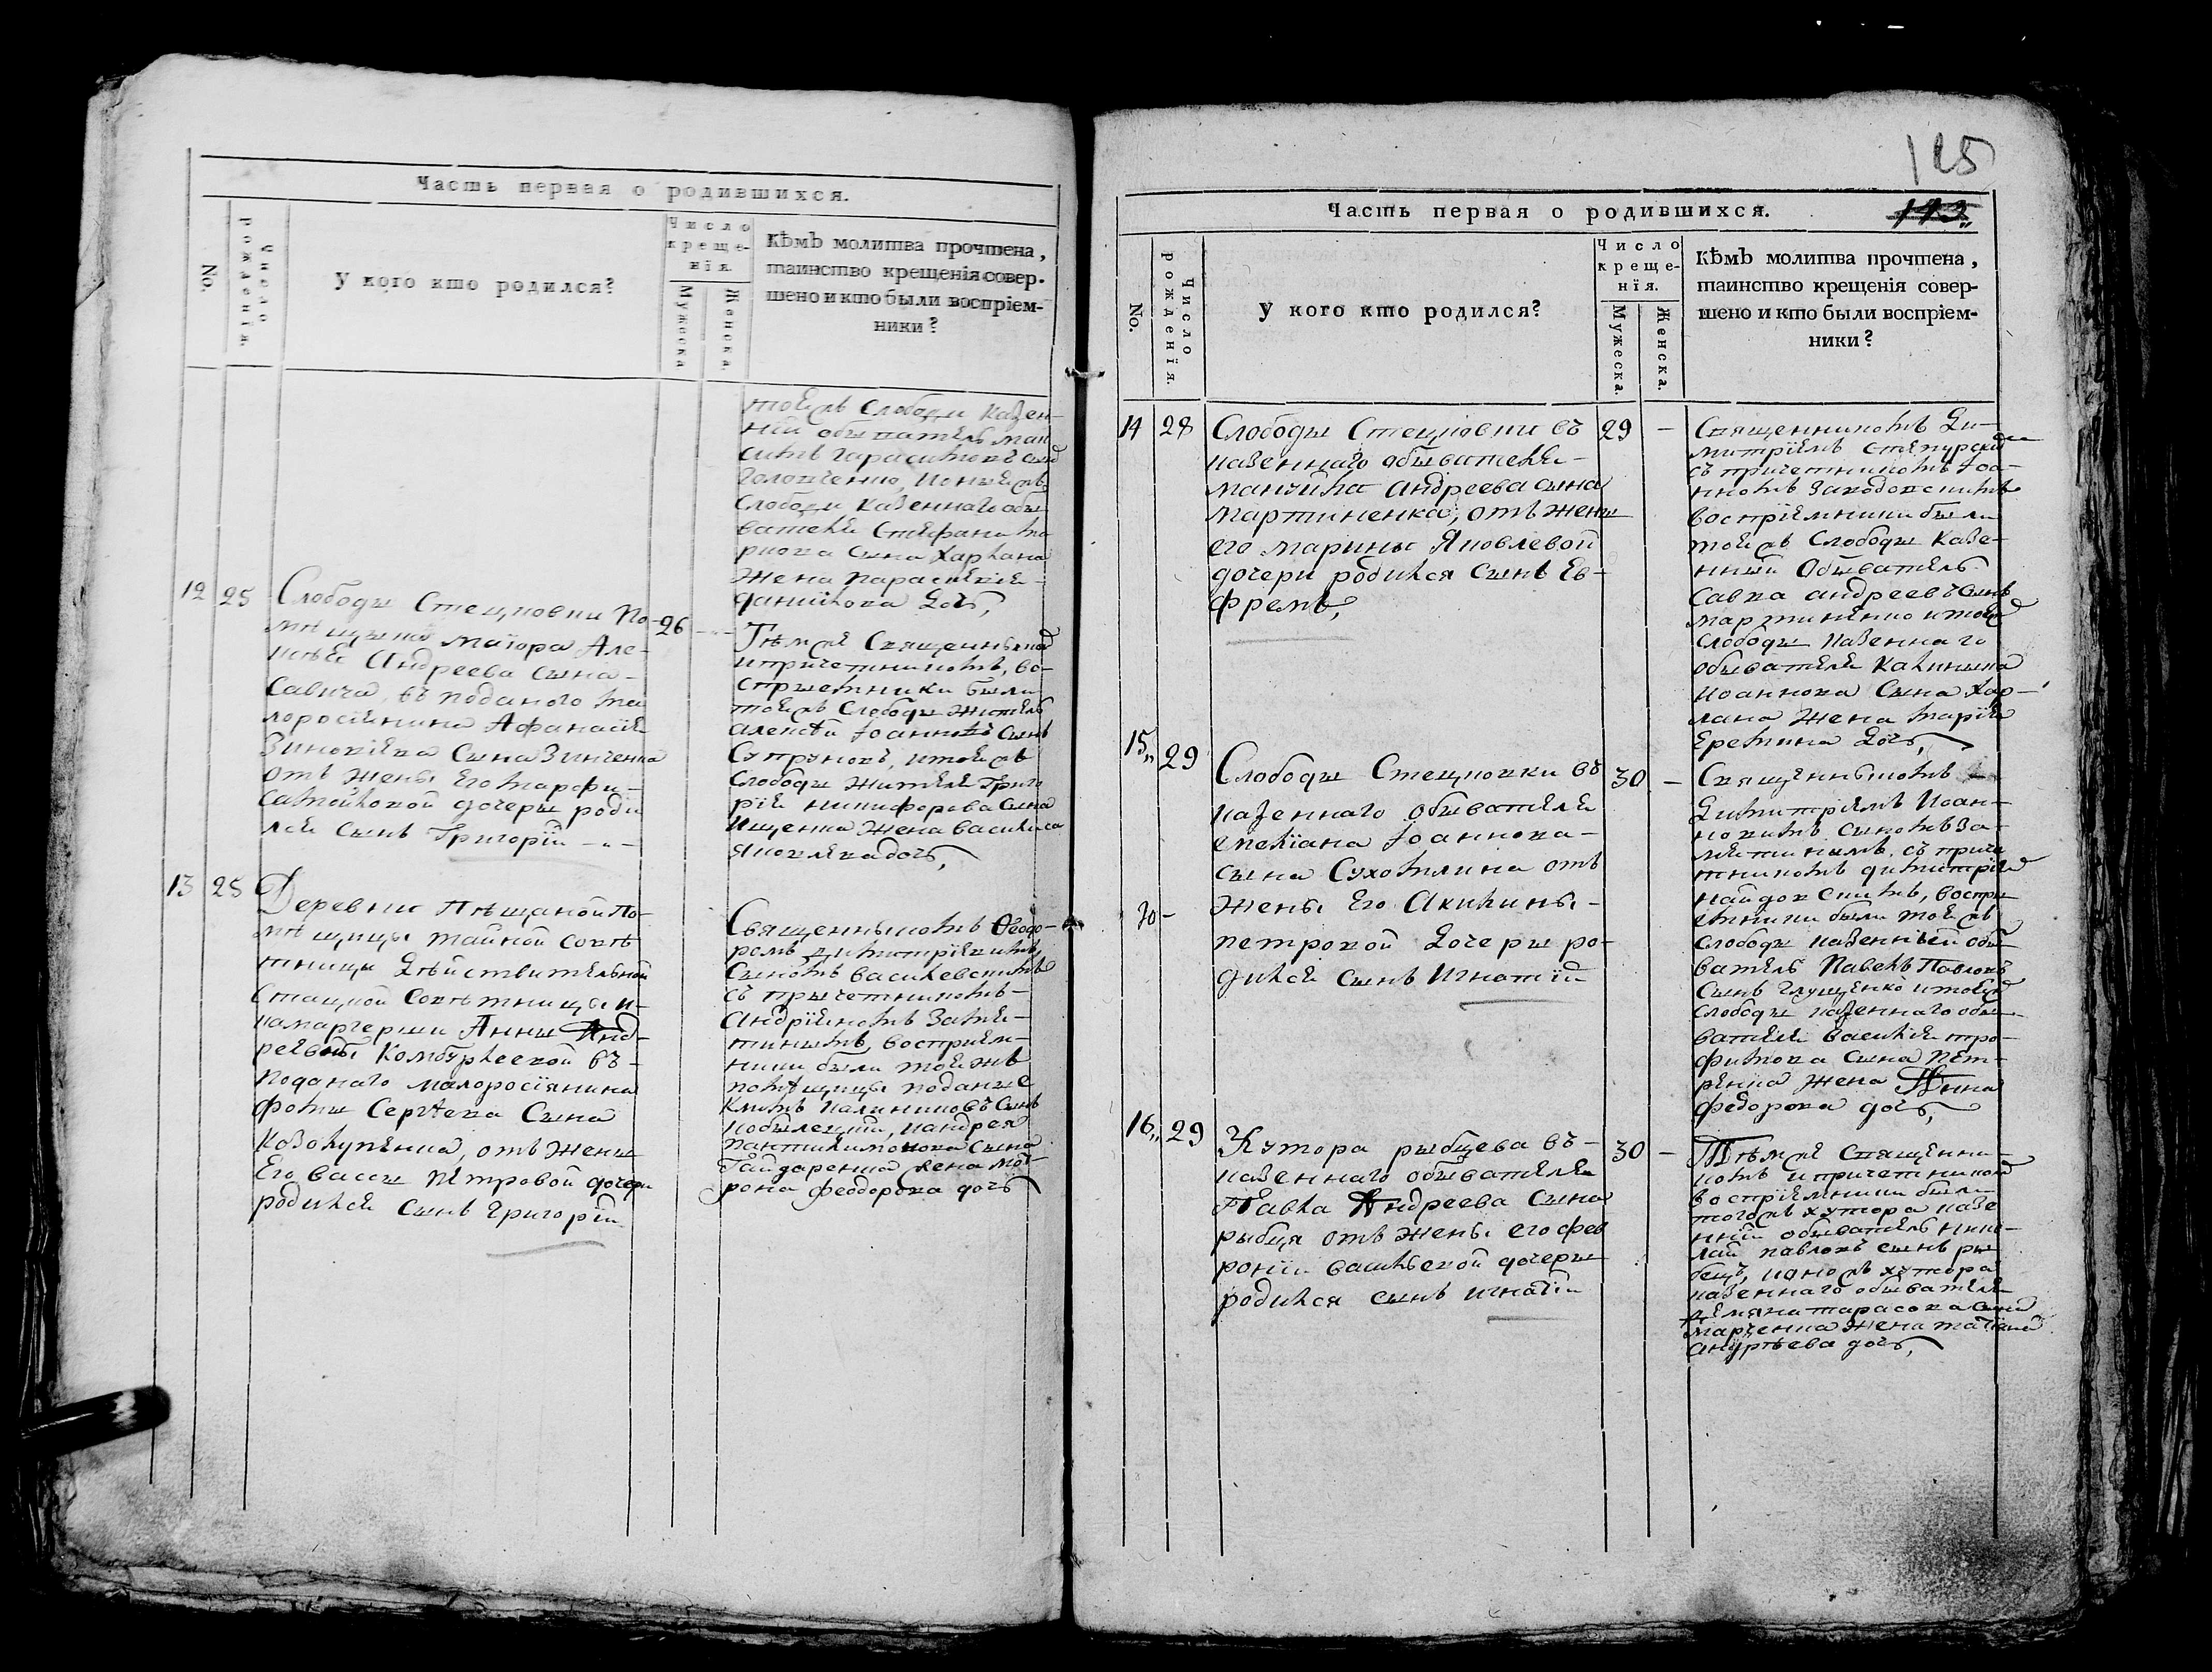 Часть первая о родившихся.
No.
Число рожденія.
У кого кто родился?
Число
креще-
нія.
Мужеска
Женска.
Кѣмъ молитва прочтена,
таинство крещенія совер-
шено и кто были воспріем-
ники?
тоя жъ Слободи казен-
ній обыватель
Голошченко,
Слободи казеннаго обы
вателя Стефана
сина Харлана
жена параскевія
даниілова дочь,
12
25
Слободы Стецковки По-
мѣщика маіора Але-
ксѣя Андреева сина
Савича, въ поданого ма
лоросіянина Афанасія
Зиновіева сина Зинченка
отъ жены Его марфи
Самойловой дочери роди
лся синъ Григорій
26
Тѣмже Священникомъ
и причетникомъ, во-
спріемники были
тоя жъ Слободы житель
алексѣй Іоанновъ синъ
Супруновъ, и тоя жъ
Слободы жителя Григо
рія никифорова сина
Ищенка жена василиса
яковлева дочь,
13
25
Деревни Пѣщаной По-
мѣщицы тайной совѣ
тници Дѣйствительной
Статской Совѣтници и
камаргерши Анны Анд-
реевны Комбурлеевой въ
поданаго малоросіянина
фомы Сергѣева Сина
Козолупенка, отъ жены
Его васси Петровой дочери
родился синъ григорій
Священникомъ Феодо-
ромъ димитріевимъ
Синомъ василевскимъ
съ причетникомъ
андріяномъ Замя-
тинимъ, воспріем-
ники были тоя жъ
помѣщици поданые
климъ калиниковъ синъ
кобылецкій, и андрея
пантилимонова сина
Гайдаренка жена мот-
рона феодорова дочь
125
143
Часть первая о родившихся.
No.
Число рожденія.
У кого кто родился?
Число
креще-
нія.
Мужеска.
Женска.
Кѣмъ молитва прочтена,
таинство крещенія совер-
шено и кто были воспріем-
ники?
14
28
Слободы Стецковки въ
казеннаго обывателя
мануйла андреева сина
мартиненка, отъ жены
его марины Яковлевой
дочери родился синъ Ев-
фремъ,
29
Священникомъ Ди-
митріемъ Степурским
съ причетникомъ Іоа-
нномъ
воспріемники были
тоя жъ Слободы казе-
нный обыватель
Савка андреевъ синъ
мартиненко и тоя жъ
Слободы казеннаго
обывателя калиника
иоаннова Сина Хар-
лана жена марія
Еремина дочь,
15
29
Слободы Стецковки въ
казеннаго обывателя
емеліана Іоаннова
сына Сухомлина отъ
жены Его Акилины
петровой дочери ро-
дился синъ Игнатій
30
30
Священникомъ
Димитріемъ Иоан-
новимъ синомъ За-
мятинымъ, съ приче
тникомъ димитріем
воспри
емники были тоя жъ
слободы казенный обы
ватель Павелъ Павловъ
синъ Глущенко и тоя жъ
слободы казеннаго обы
вателя василія тро-
фимова сина Пет-
ренка жена Анна
федорова дочь,
16
29
Хутора рыбцева въ
казеннаго обывателя
Павла Андреева сина
рыбця отъ жены его фев
роніи васильевой дочери
родился синъ игнатій
30
Тѣмже Священни-
комъ и причетником
воспріемники были
того жъ хутора казе
нній обыватель нико
лай павловъ синъ ры
бецъ, и того жъ хутора
казеннаго обывателя
демяна тарасова сина
марченка жена татіана
андреева дочь,